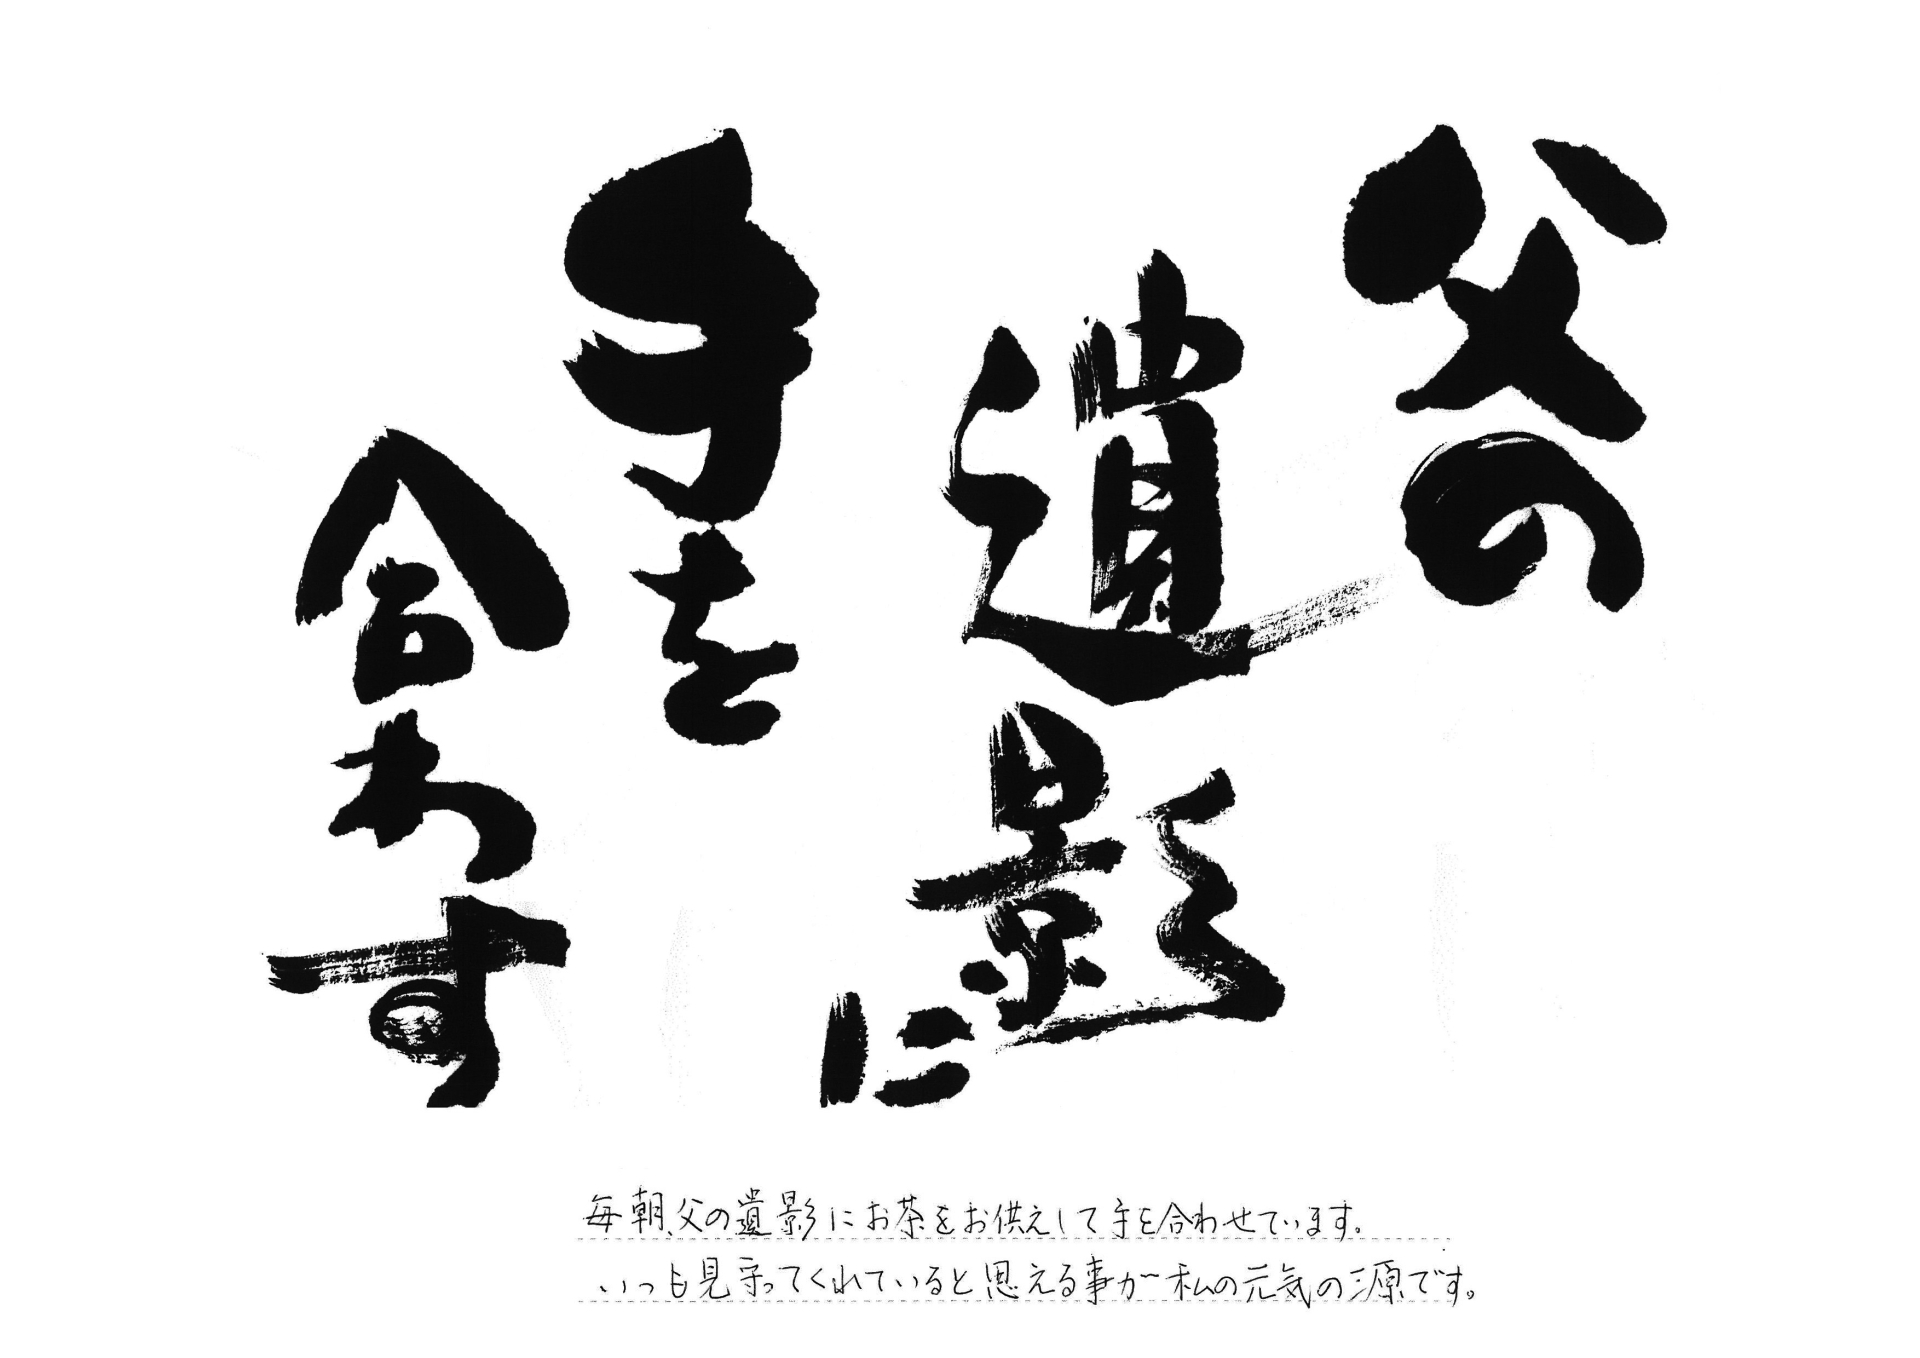 父の
遺影に
手を
合わす
毎朝、父の遺影にお茶をお供えして手を合わせています。
いつも見守ってくれていると思える事が私の元気の源です。